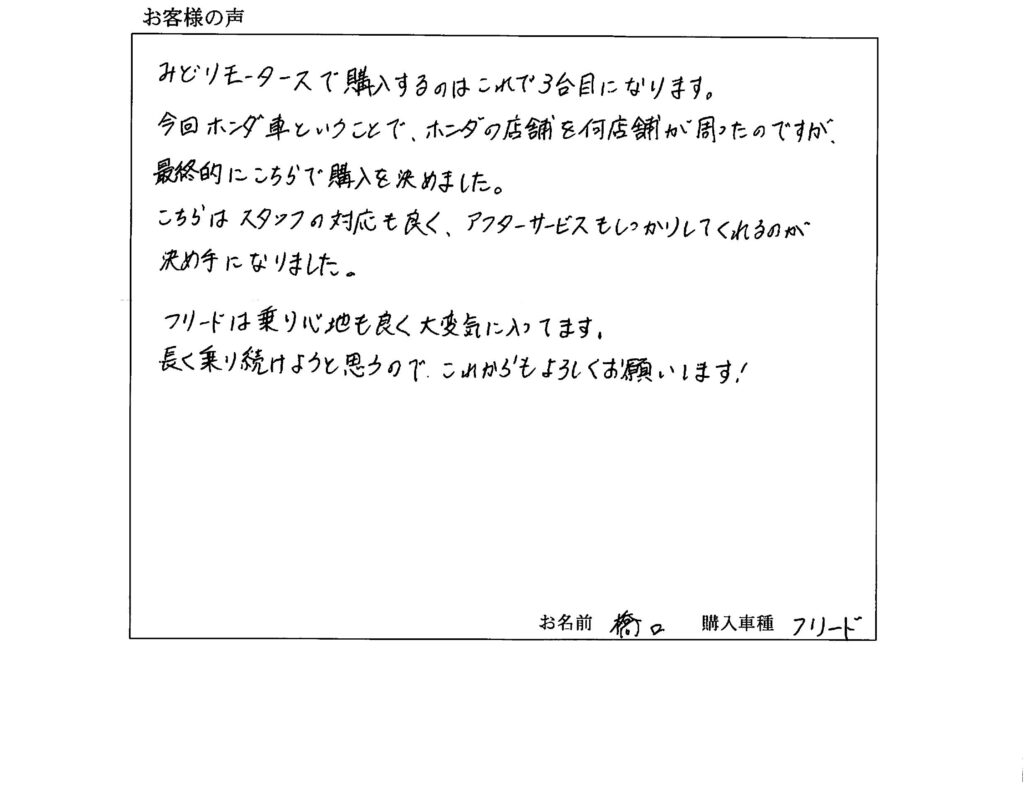 お客様の声
みどりモータースで購入するのはこれで3台目になります。
今回ホンダ車ということで、ホンダの店舗を何店舗が周ったのですが、
最終的にこちらで購入を決めました。
こちらはスタッフの対応も良く、アフターサービスもしっかりしてくれるのが
決め手になりました。
フリードは乗り心地も良く大変気に入ってます。
長く乗り続けようと思うので、これからもよろしくお願いします!
お名前 橋口 購入車種 フリード